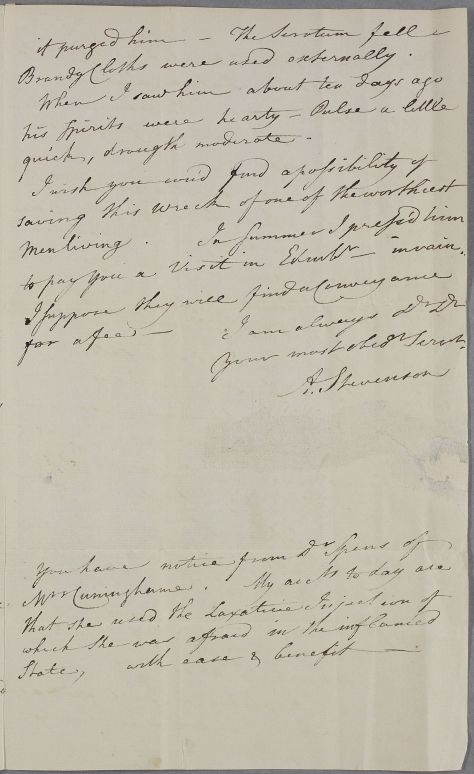 it purged him — The Scrotum fell &
Brandy Cloths were used externally.
When I saw him about ten days ago
his spirits were hearty — Pulse a little
quick, drougth moderate —
I wish you could find a possibility of
saving this wreck of one of the worthiest
Men living. In Summer I press'd him
to pay you a Visit in Edinbr — in vain.
I suppose they will find a Conveyance
for a fee — I am always Dr Dr
Your most obedt Servt
A. Stevenson
You have notice from Dr Spens of
Mrs Cuninghame. My accts to day are
that she used the Laxative Injection of
which she was afraid in the inflamed
State, with ease & benefit —